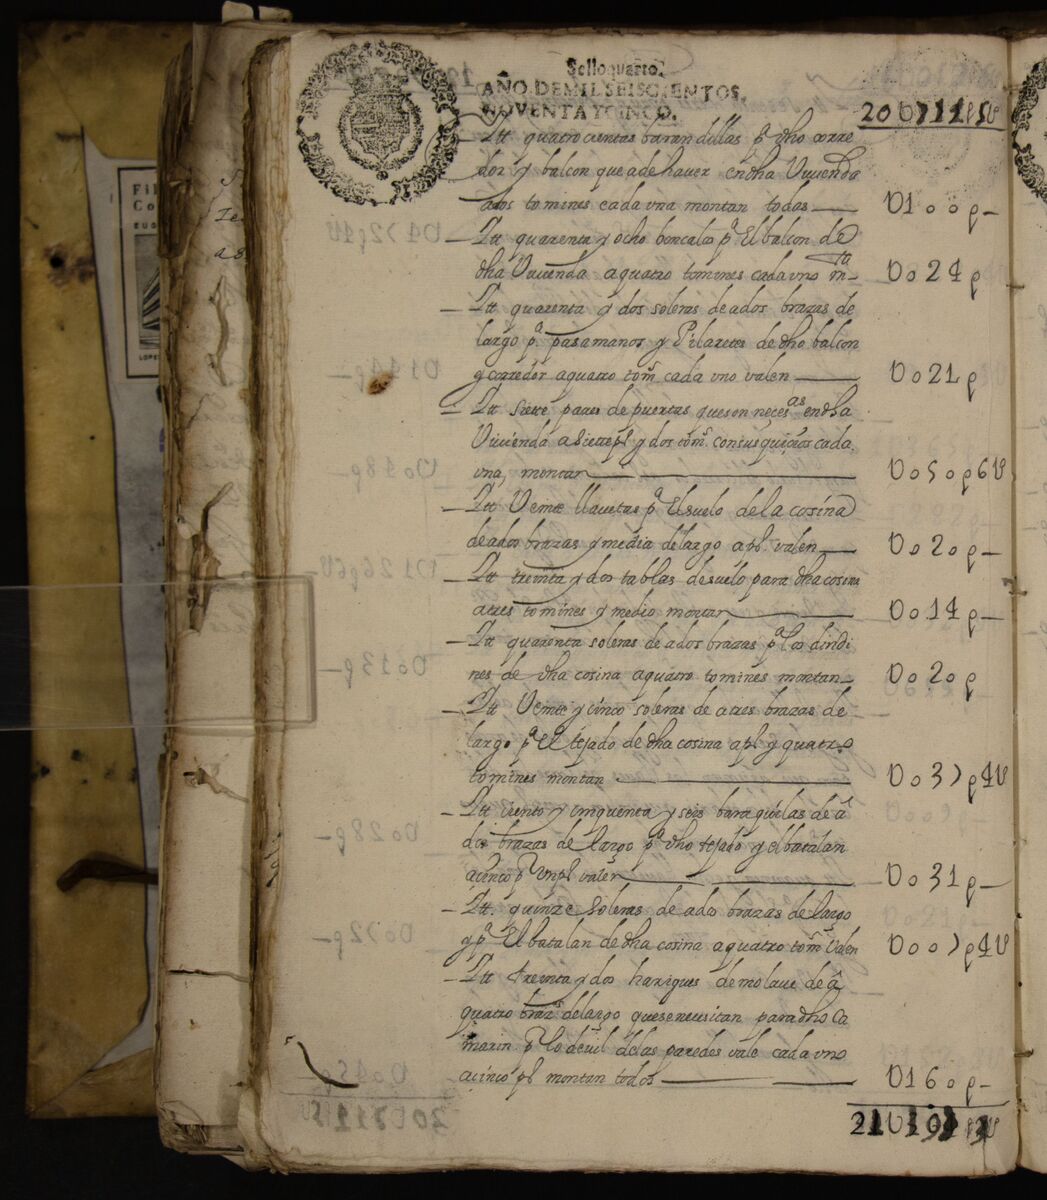 Sello quarto,
AÑO DE MIL SEISCIENTOS,
NOVENTA Y CINCO.
Itt quatrocientas barandillas pª dho corre
dor y balcon que a de haver en dha Vivienda
ados tomines cada vna montan todas — U100p–
– Itt quarenta y ocho boncalos pª El balcon de
dha Vivienda aquatro tomines cada vno m–ta U024p
– Itt quarenta y dos soleras de ados brazas de
largo pª pasamanos y Pilaretes de dho balcon
y corredor aquatro tomˢ cada vno valen — U021p
– Itt siette pares de puertas que son necesᵃˢ en dha
Vivienda a siette pˢ y dos tomˢ con sus quiçios cada
vna, montan — U050p6U
– Itt Veinte llavetas pª El suelo de la cosina
de ados brazas y media de largo a pº valen — U020p–
– Itt treinta y dos tablas de suelo para dha cosina
atres tomines y medio montan — U014p–
– Itt quarenta soleras de ados brazas pª los dindi
nes de dha cosina aquatro tomines montan– U020p
– Itt Veinte y cinco soleras de atres brazas de
largo pª El tejado de dha cosina a pº y quatro
tomines montan — U037p4U
– Itt ciento y cinquenta y seis baraquilas de â
dos brazas de largo pª dho tejado y el batalan
acinco pʳ Vn pº valen — U031p–
– Itt. quinze soleras de ados brazas de largo
y pª El batalan de dha cosina aquatro tomˢ Valen U007p4U
– Itt treinta y dos harigues de molave de â
quatro brazˢ de largo que se necesitan para dho Ca
marin pʳ lo devil de las paredes vale cada vno
acinco pˢ montan todos — U160p–